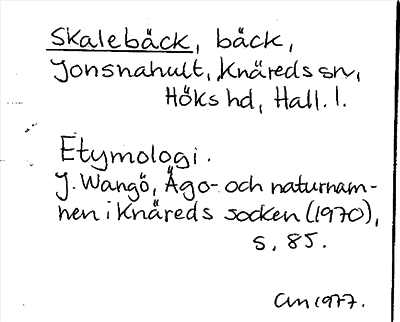 Skalebäck, bäck,
Jonsnahult, Knäreds sn,
Höks hd, Hall. l.
Etymologi.
J. Wangö, Ägo- och naturnam-
nen i Knäreds socken (1970),
s. 85.
1977.